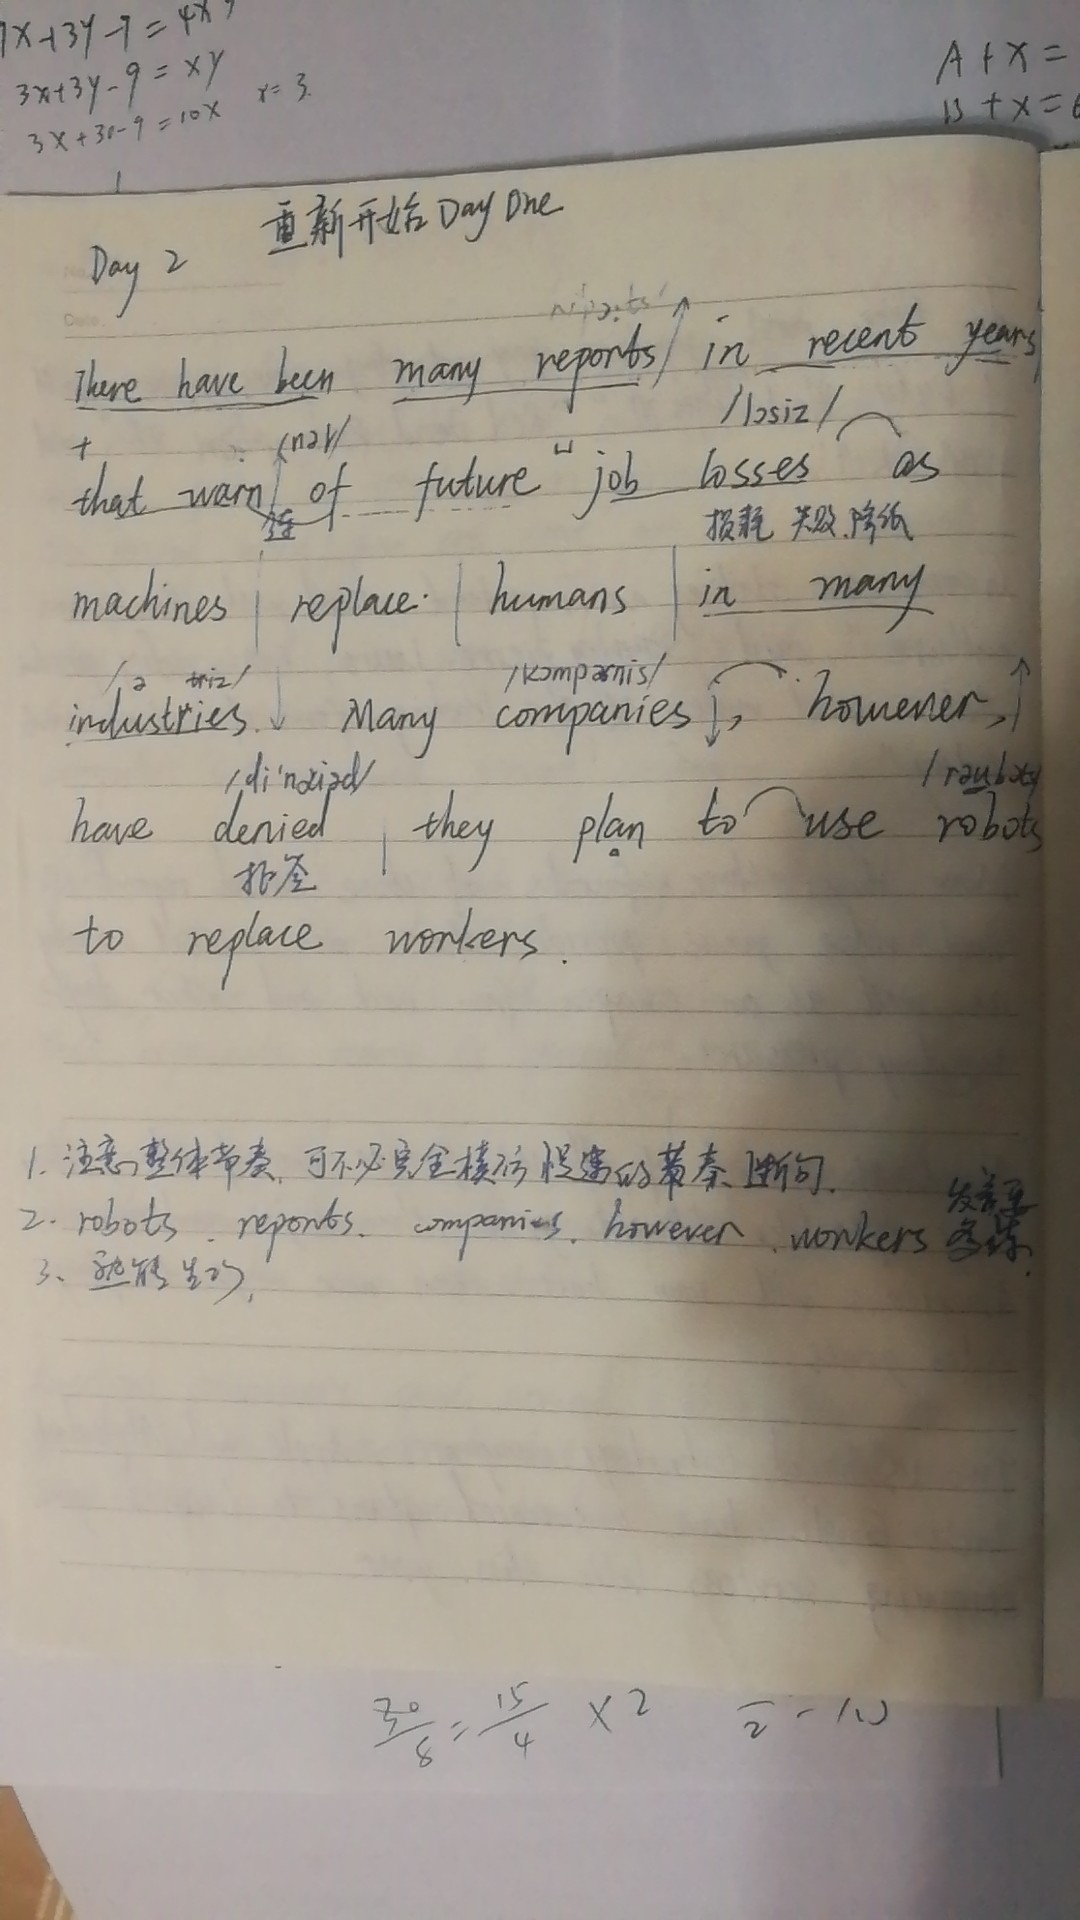 3x+3y-9=xy
x=3
A+x=
B+x=6
重新开始 Day One
Day 2
There have been many reports/ in recent years
/nər/
/lɔsiz/
that warn of future job losses as
连
损耗 失败 降低
machines | replace | humans | in many
/ə triz/
/kɔmpənis/
industries. Many companies, however,
/di'naiəd/
have denied, they plan to use robots
拒签
to replace workers.
1. 注意整体节奏,可不必完全模仿 的节奏、断句.
2. robots. reports. companies. however. workers 发音要多练.
3. 熟能生巧,
30/8=15/4 ×2